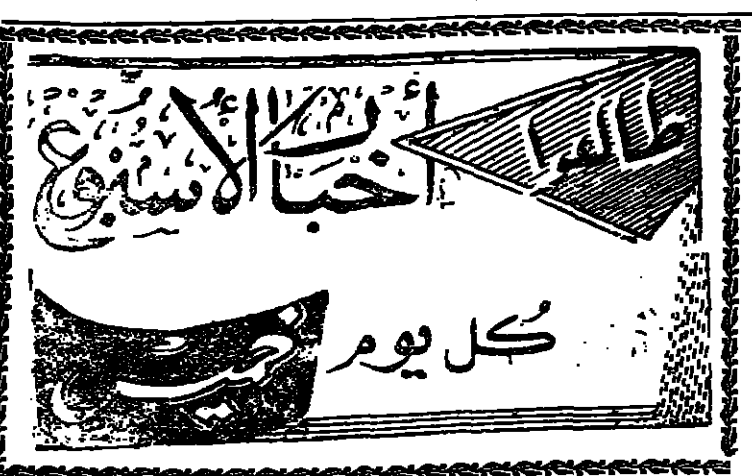 طالعوا
أخبار الأسبوع
كُل يوم
خميس